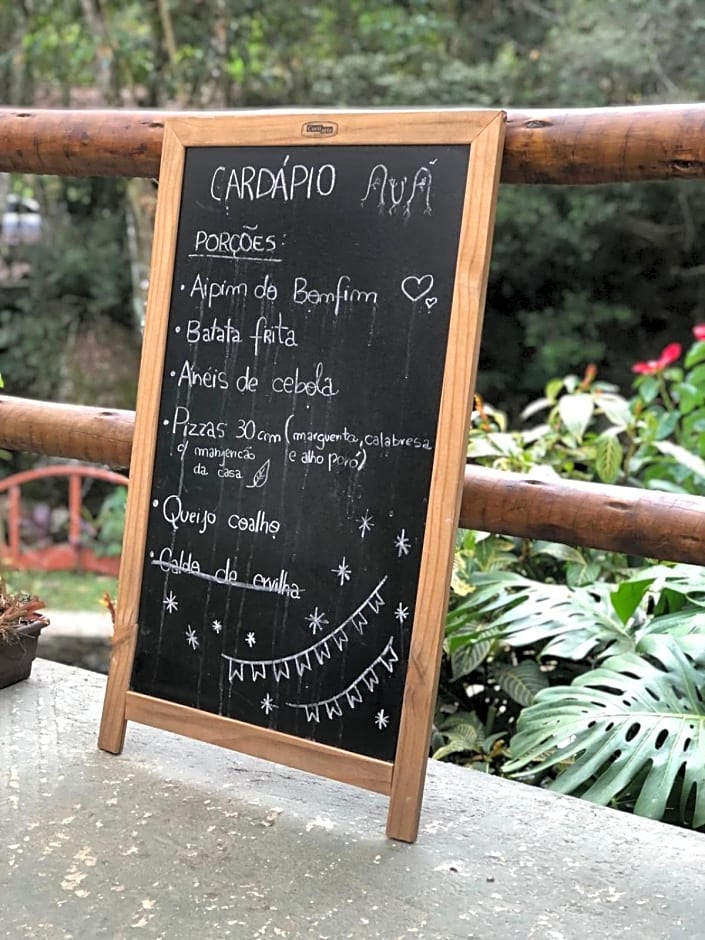 CARDÁPIO AUÁ
PORÇÕES:
• Aipim do Bomfim
• Batata frita
• Anéis de cebola
• Pizzas 30cm (marguerita, calabresa
c/ manjericão e alho poró)
da casa
• Queijo coalho
• Caldo de ervilha